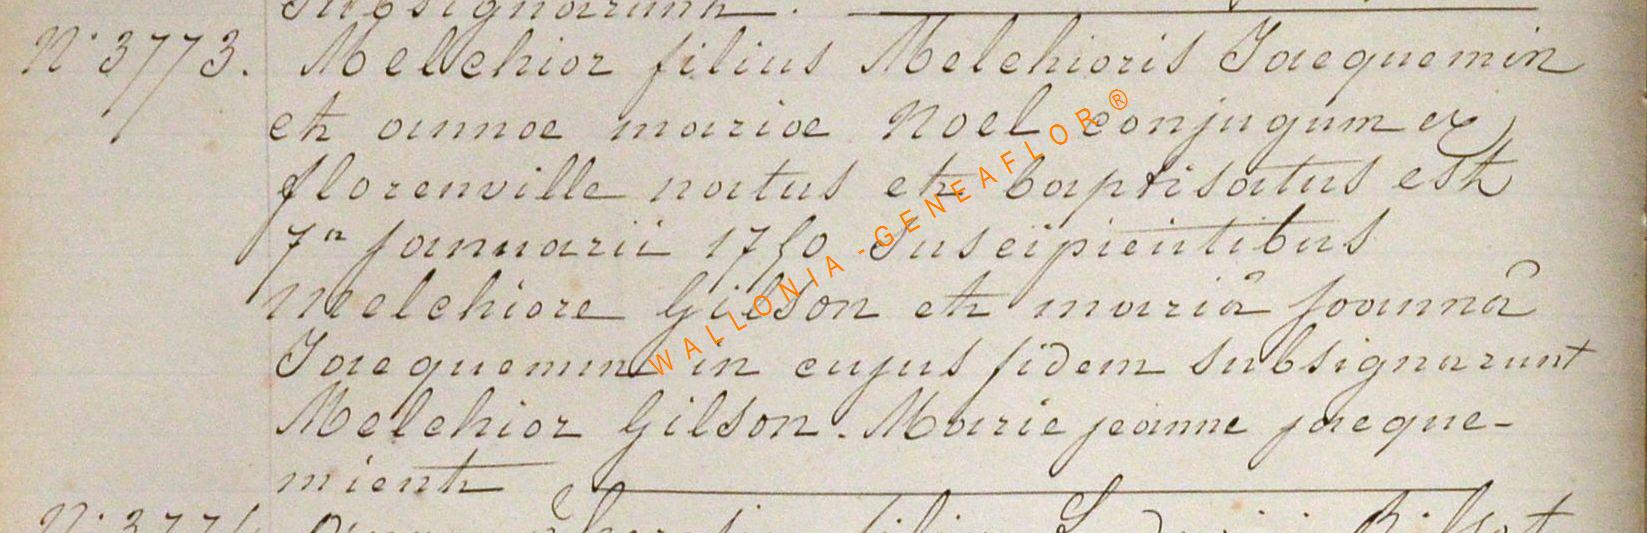 subsignarunt.
N° 3773. Melchior filius Melchioris Jacquemin
et annae mariae Noel conjugum ex
florenville natus et baptisatus est
7a januarii 1750 suscipientibus
melchiore Gilson et mariâ joannâ
Jacquemin in cujus fidem subsignarunt
Melchior Gilson. Marie jeanne jacque-
mient
N° 3774
WALLONIA - GENEAFLOR ®